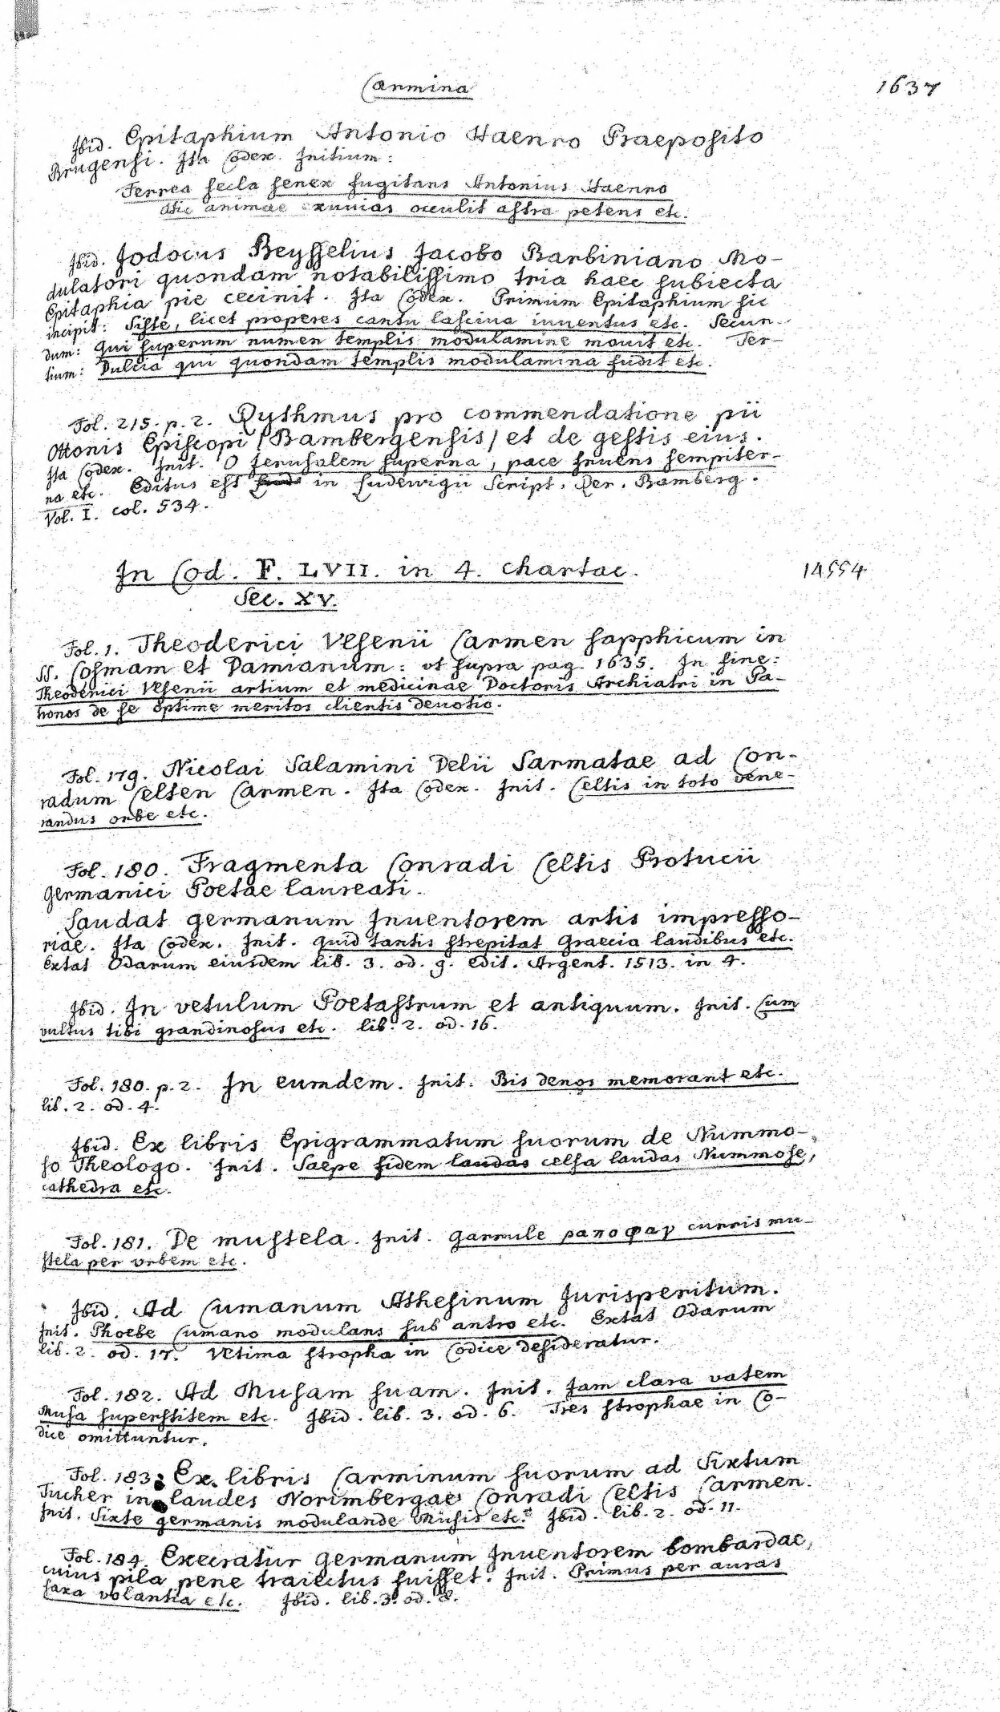 Carmina
1637
Ibid. Epitaphium Antonio Haenro Praeposito
Brugensi. Ita Codex. Initium:
Ferrea secla senex fugitans Antonius Haenro
Hic animae exuuias occulit astra petens etc.
Ibid. Jodocus Beysselius Jacobo Barbiniano Mo-
dulatori quondam notabilissimo tria haec subiecta
Epitaphia pie cecinit. Ita Codex. Primum Epitaphium sic
incipit: Siste, licet properes cantu lasciua iuuentus etc. Secun-
dum: Qui superum numen templis modulamine mouit etc. Ter-
tium: Dulcia qui quondam templis modulamina fudit etc.
Fol. 215. p. 2. Rythmus pro commendatione pii
Ottonis Episcopi /Bambergensis/ et de gestis eius.
Ita Codex. Init. O Jerusalem superna, pace fruens sempiter-
na etc. Editus est in Ludewigii Script. Rer. Bamberg.
Vol. I. col. 534.
In Cod. F. LVII. in 4. chartac.
14554
Sec. XV.
Fol. 1. Theoderici Vlsenii Carmen sapphicum in
SS. Cosmam et Damianum: vt supra pag. 1635. In fine:
Theoderici Vlsenii artium et medicinae Doctoris Archiatri in Pa-
tronos de se optime meritos clientis deuotio.
Fol. 179. Nicolai Salamini Delii Sarmatae ad Con-
radum Celten Carmen. Ita Codex. Init. Celtis in toto vene-
randus orbe etc.
Fol. 180. Fragmenta Conradi Celtis Protucii
Germanici Poetae laureati.
Laudat germanum Inuentorem artis impresso-
riae. Ita Codex. Init. Quid tantis strepitat Graecia laudibus etc.
Extat Odarum eiusdem lib. 3. od. 9. edit. Argent. 1513. in 4.
Ibid. In vetulum Poetastrum et antiquum. Init. Cum
vultus tibi grandinosus etc. lib. 2. od. 16.
Fol. 180. p. 2. In eumdem. Init. Bis denos memorant etc.
lib. 2. od. 4.
Ibid. Ex libris Epigrammatum suorum de Nummo-
so Theologo. Init. Saepe fidem laudas celsa laudas Nummose,
cathedra etc.
Fol. 181. De mustela. Init. Garrule παποφαγ curris mu-
stela per vrbem etc.
Ibid. Ad Cumanum Athesinum Jurisperitum.
Init. Phoebe Cumano modulans sub antro etc. Extat Odarum
lib. 2. od. 17. Vltima stropha in Codice desideratur.
Fol. 182. Ad Musam suam. Init. Jam clara vatem
Musa superstitem etc. Ibid. lib. 3. od. 6. Tres strophae in Co-
dice omittuntur.
Fol. 183. Ex libris Carminum suorum ad Sixtum
Tucher in laudes Norimbergae Conradi Celtis Carmen.
Init. Sixte germanis modulande Musis etc. Ibid. lib. 2. od. 11.
Fol. 184. Execratur germanum Inuentorem bombardae,
cuius pila pene traiectus fuisset. Init. Primus per auras
saxa volantia etc. Ibid. lib. 3. od. 8.